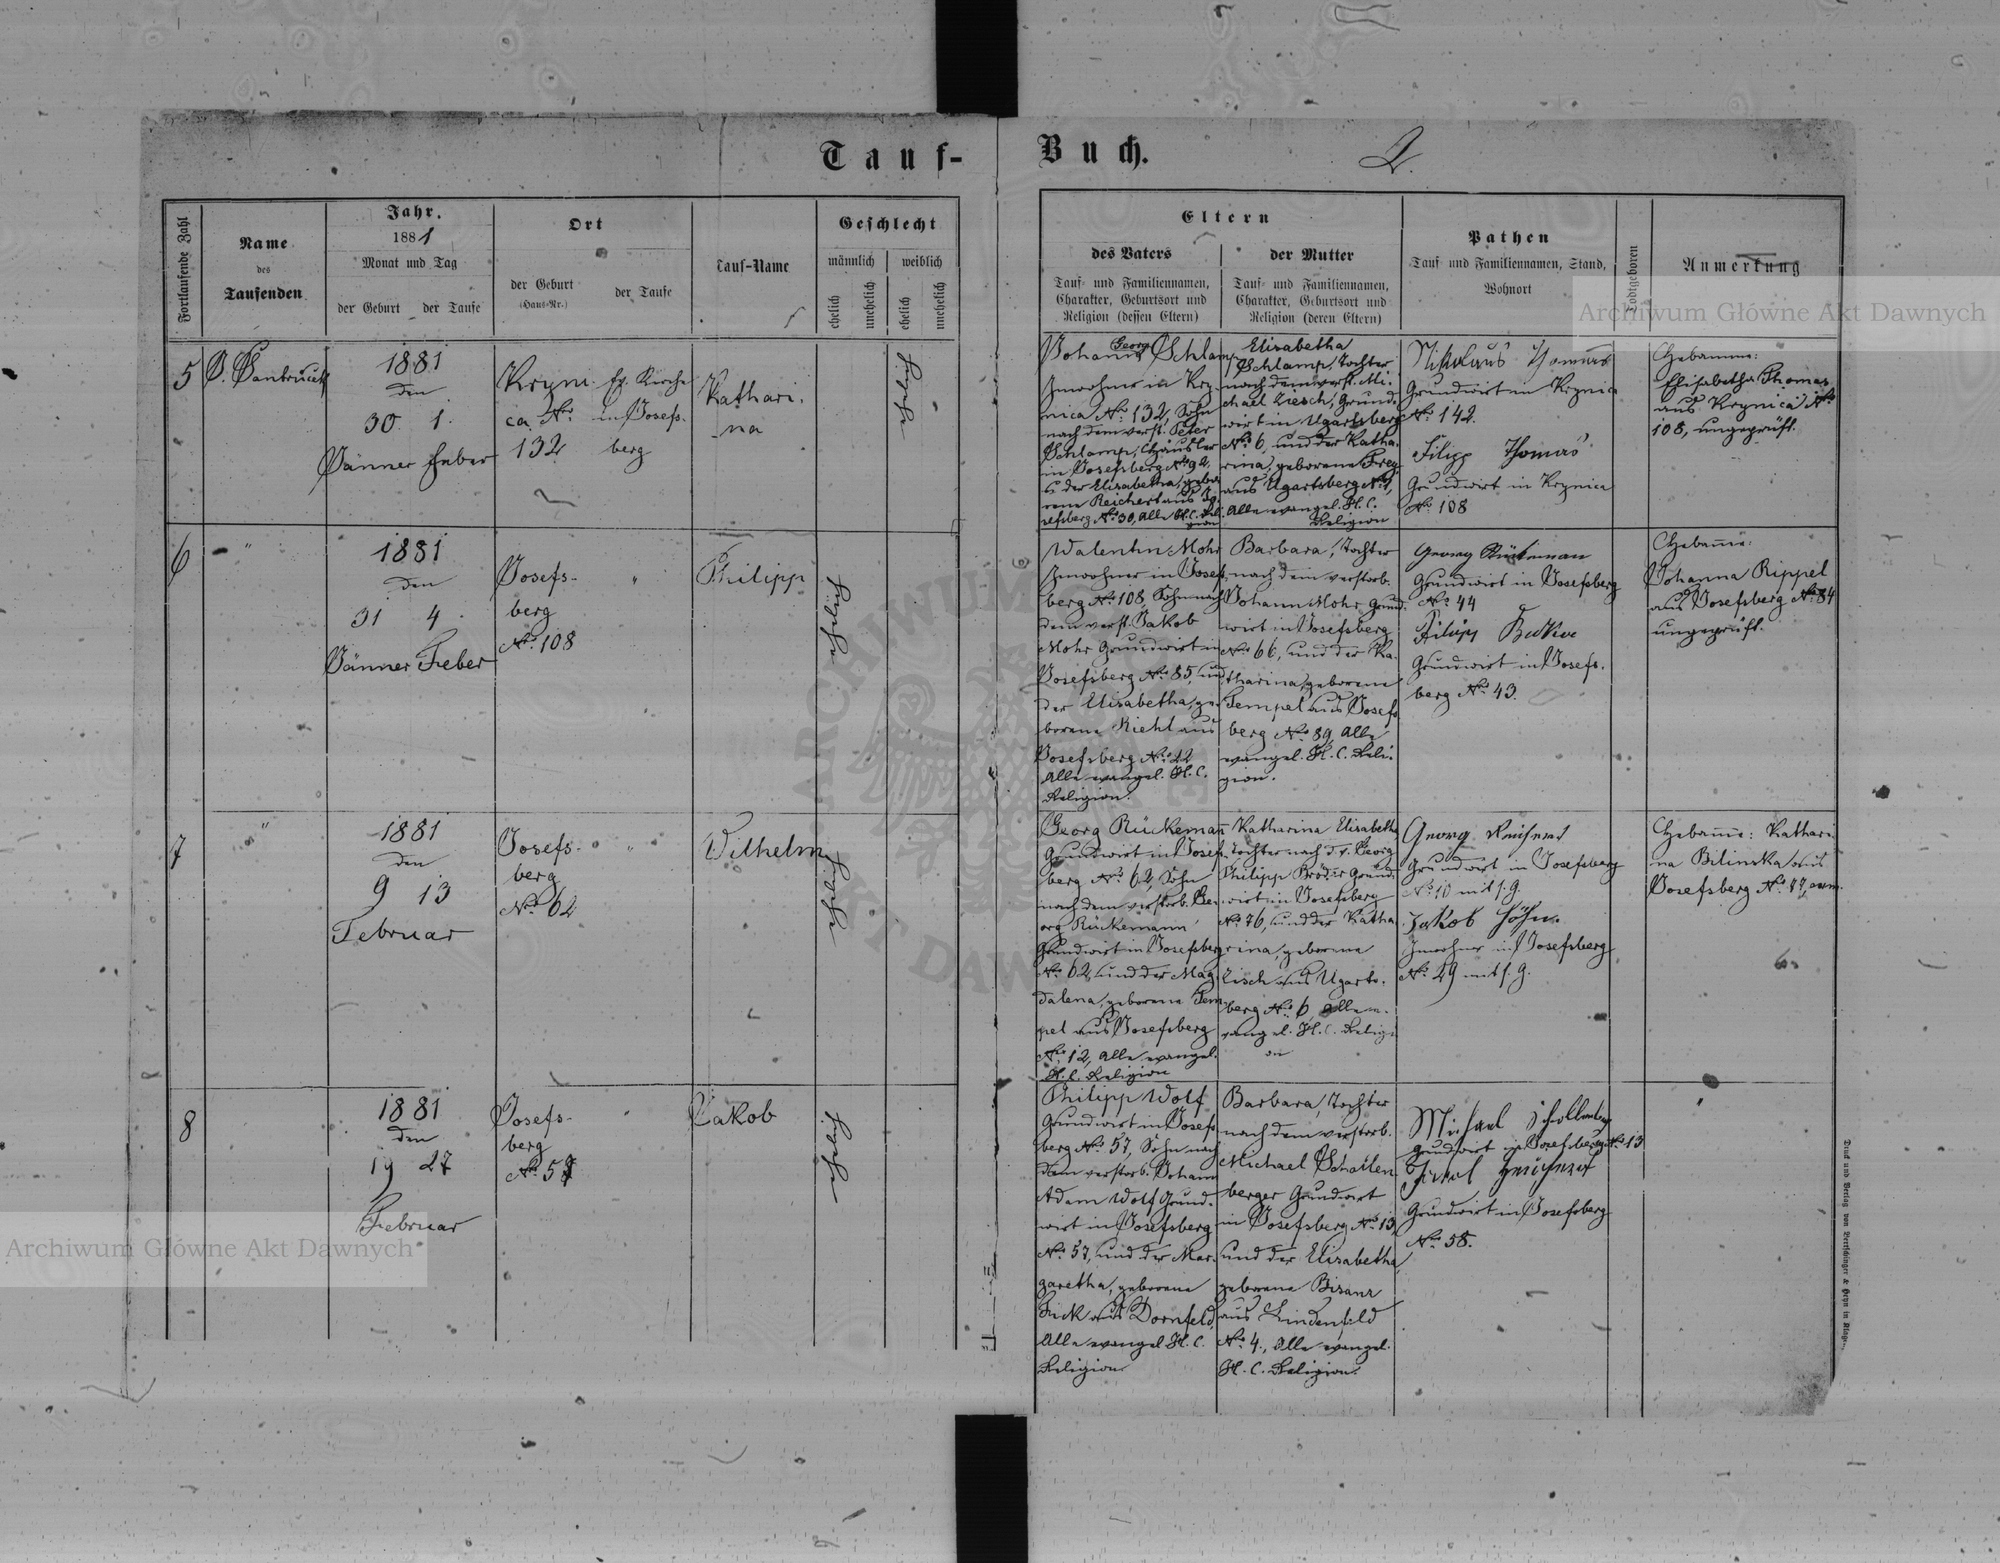 Tauf-Buch.
2.
Fortlaufende Zahl
Name
des
Taufenden
Jahr.
1881
Monat und Tag
der Geburt der Taufe
Ort
der Geburt
(Haus-Nr.)
der Taufe
Tauf-Name
Geschlecht
männlich weiblich
ehelich unehelich ehelich unehelich
Eltern
des Vaters
Tauf- und Familiennamen,
Charakter, Geburtsort und
Religion (dessen Eltern)
der Mutter
Tauf- und Familiennamen,
Charakter, Geburtsort und
Religion (deren Eltern)
Pathen
Tauf- und Familiennamen, Stand,
Wohnort
Todtgeboren
Anmerkung
5
1881
den
30. 1.
Jänner Feber
Kryni-
ca No
132
Ev. Kirche
in Josefs-
berg
Kathari-
na
ehelich
Georg
Johann Schlamp
Inwohner in Kry-
nica No 132, Sohn
nach dem verst. Peter
Schlamp, Häusler
in Josefsberg No 92,
u. der Elisabetha, gebo-
rene Reichert aus Jo-
sefsberg No 30, Alle H. C. Reli-
gion
Elisabetha
Schlamp, Tochter
nach dem verst. Mi-
chael Ziesch, Grund-
wirt in Ugartsberg
No 6, und der Katha-
rina, geborene Frey
aus Ugartsberg No 1,
Alle evangel. H. C.
Religion
Nikolaus Thomas
Grundwirt in Krynica
No 142.
Filipp Thomas
Grundwirt in Krynica
No 108
Hebamme:
Elisabetha Thomas
aus Krynica No
108, ungeprüft.
6
"
1881
den
31 4
Jänner Feber
Josefs-
berg
No 108
"
Philipp
ehelich
Valentin Mohr
Inwohner in Josefs-
berg No 108, Sohn nach
dem verst. Jakob
Mohr Grundwirt in
Josefsberg No 85, und
der Elisabetha, ge-
borene Riehl aus
Josefsberg No 22
Alle evangel. H. C.
Religion.
Barbara, Tochter
nach dem verstorb.
Johann Mohr Grund-
wirt in Josefsberg
No 66, und der Ka-
tharina, geborene
Tempel aus Josefs
berg No 89, Alle
evangel. H. C. Reli-
gion.
Georg Rückeman
Grundwirt in Josefsberg
No 44
Filipp
Grundwirt in Josefs-
berg No 43.
Hebamme:
Johanna Rippel
aus Josefsberg No 84
ungeprüft.
7
"
1881
den
9 13
Februar
Josefs-
berg
No 62
"
Wilhelm
ehelich
Georg Rückeman
Grundwirt in Josefs-
berg No 62, Sohn
nach dem verstorb. Ge-
org Rückemann
Grundwirt in Josefsberg
No 62, und der Mag-
dalena, geborene Tem-
pel aus Josefsberg
No 12, Alle evangel.
H. C. Religion
Katharina Elisabetha
Tochter nach d. v. Georg
Philipp Bröder Grund-
wirt in Josefsberg
No 76, und der Katha-
rina, geborene
Zisch aus Ugarts-
berg No 6, Alle e-
vangel. H. C. Religi-
on
Georg Reichert
Grundwirt in Josefsberg
No 10 mit s. G.
Jakob Höhn.
Inwohner in Josefsberg
No 29 mit s. G.
Hebamme: Kathari-
na Bilinska aus
Josefsberg No
8
1881
den
19 27
Februar
Josefs-
berg
No 57
"
Jakob
ehelich
Philipp Wolf
Grundwirt in Josefs
berg No 57, Sohn nach
dem verstorb. Johann
Adam Wolf Grund-
wirt in Josefsberg
No 57, und der Mar-
garetha, geborene
Fuck aus Dornfeld,
Alle evangel. H. C.
Religion.
Barbara, Tochter
nach dem verstorb.
Michael Schallen-
berger Grundwirt
in Josefsberg No 13
und der Elisabetha,
geborene Bisanz
aus Lindenfeld
No 4., Alle evangel.
H. C. Religion.
Michael Schallenberger
Grundwirt in Josefsberg No 13
Grundwirt in Josefsberg
No 58.
Druck und Verlag von Bertschinger & Heyn in Klag
Archiwum Główne Akt Dawnych
Archiwum Główne Akt Dawnych